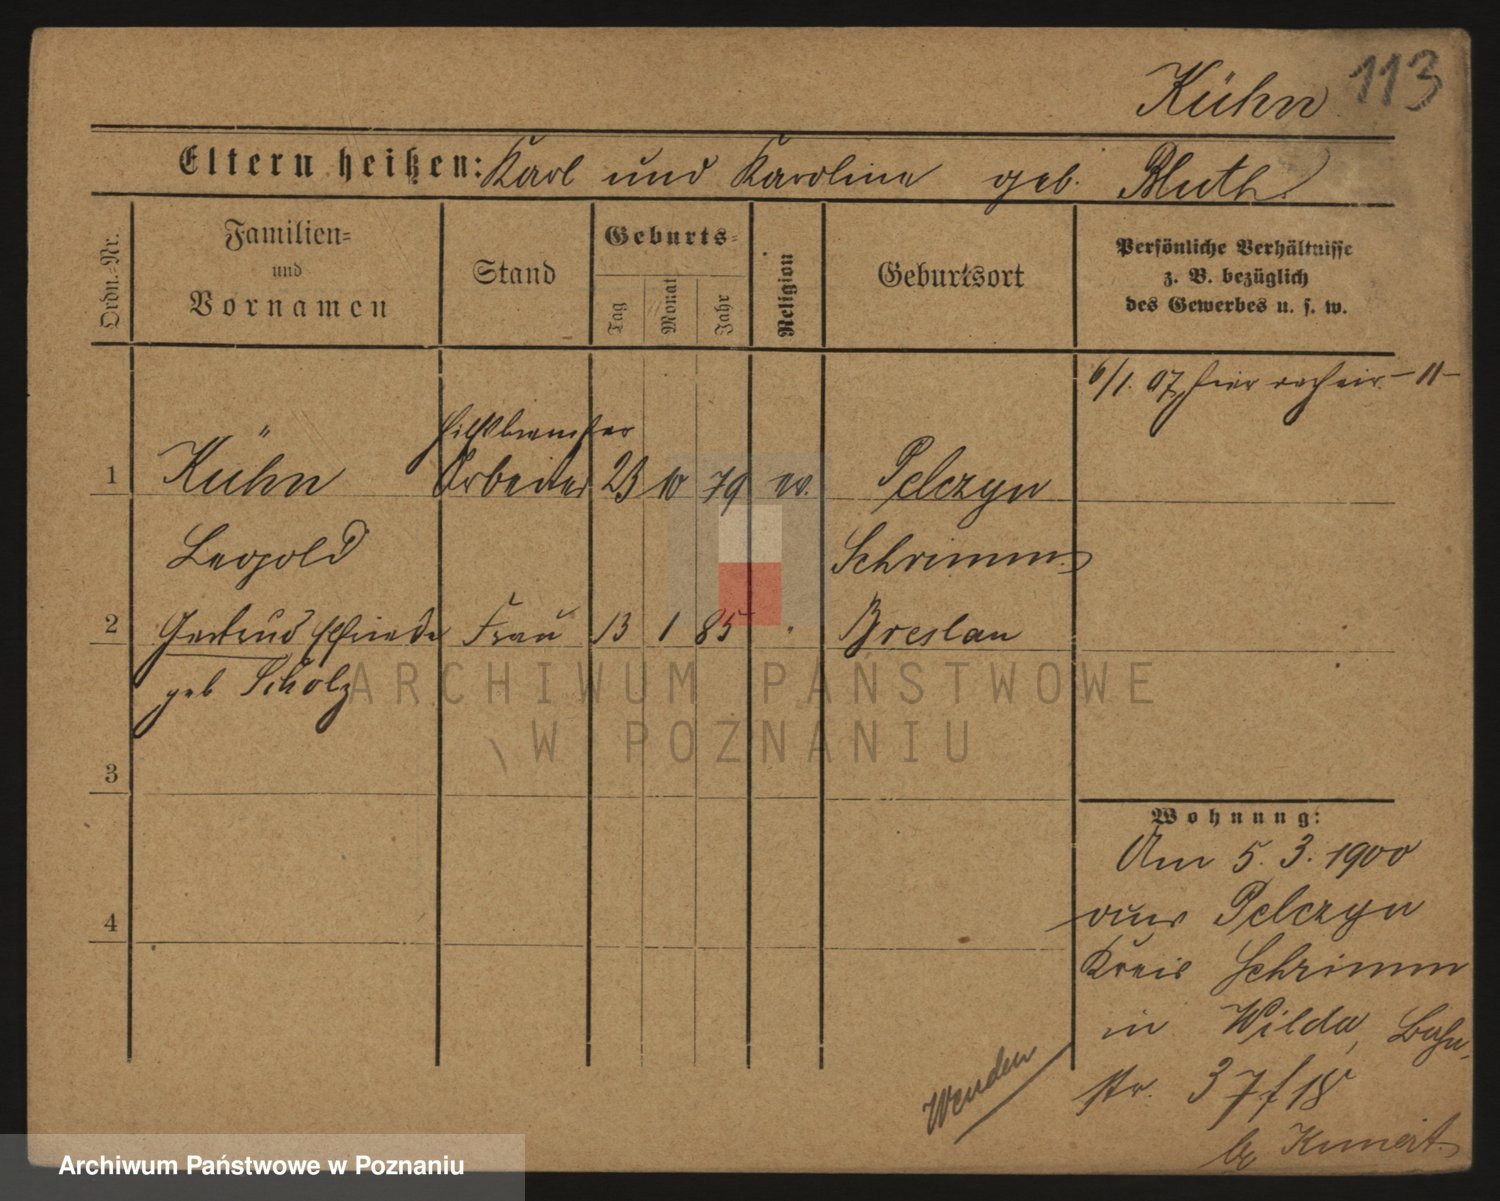 Kühn 113
Eltern heißen: Karl und Karoline geb. Bluth
Ordn.=Nr.
Familien=
und
Vornamen
Stand
Geburts=
Tag
Monat
Jahr
Religion
Geburtsort
Persönliche Verhältnisse
z. B. bezüglich
des Gewerbes u. s. w.
6/1. 07. hier
Hilfsbremser
1 Kühn Arbeiter 23 10 79 ev. Pelczyn
Leopold Schrimm
2 Gertrud Elfriede Frau 13 1 85 " Breslau
geb Scholz
3
4
Wohnung:
Am 5. 3. 1900
aus Pelczyn
Kreis Schrimm
in Wilda, Bahn-
str. 37/18
b/ Kunert
Wenden
ARCHIWUM PAŃSTWOWE
W POZNANIU
Archiwum Państwowe w Poznaniu